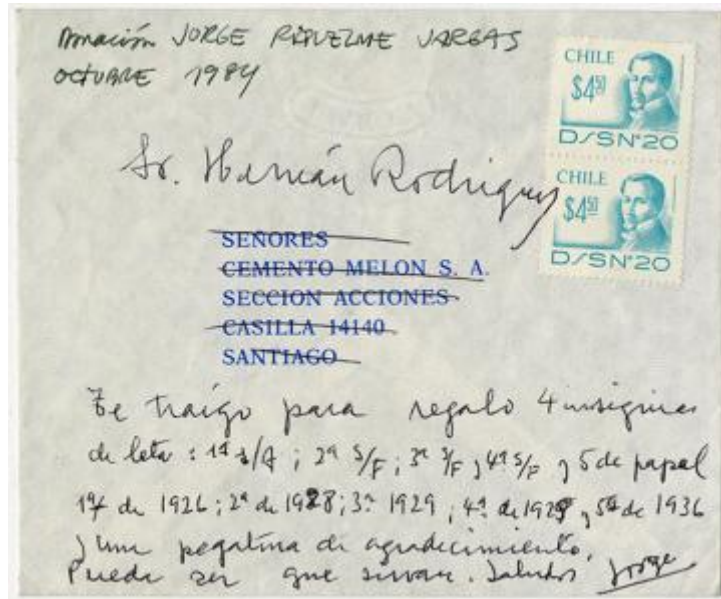 Donación JORGE RIQUELME VARGAS
OCTUBRE 1984
CHILE
$4.50
D/S Nº 20
Sr. Hernán Rodríguez
CHILE
$4.50
D/S Nº 20
SEÑORES
CEMENTO MELON S. A.
SECCION ACCIONES
CASILLA 14140
SANTIAGO
Te traigo para regalo 4 insignias
de lata : 1ª s/f ; 2ª s/F ; 3ª s/F y 4ª s/F y 5 de papel
1ª de 1926 ; 2ª de 1928 ; 3ª 1929 ; 4ª de 1929 y 5ª de 1936
y una pegatina de agradecimiento.
Puede ser que sirvan. Saludos Jorge